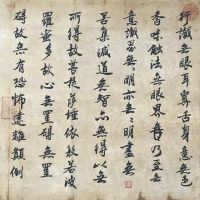 行識無眼耳鼻舌身意無色
香味觸法無眼界乃至無
意識界無明亦無無明盡無
苦集滅道無智亦無得以無
所得故菩提薩埵依般若波
羅蜜多故心無罣礙無罣
礙故無有恐怖遠離顛倒